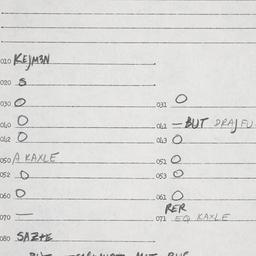 010 KEJM3N
020 S
030 O
031 O
040 O
041 — BUT DRAJFU
042 O
043 O
050 A KAXLE
051 O
052 O
053 O
060 O
061 O
070 —
RER
071 EQ KAXLE
080 SAZ+E